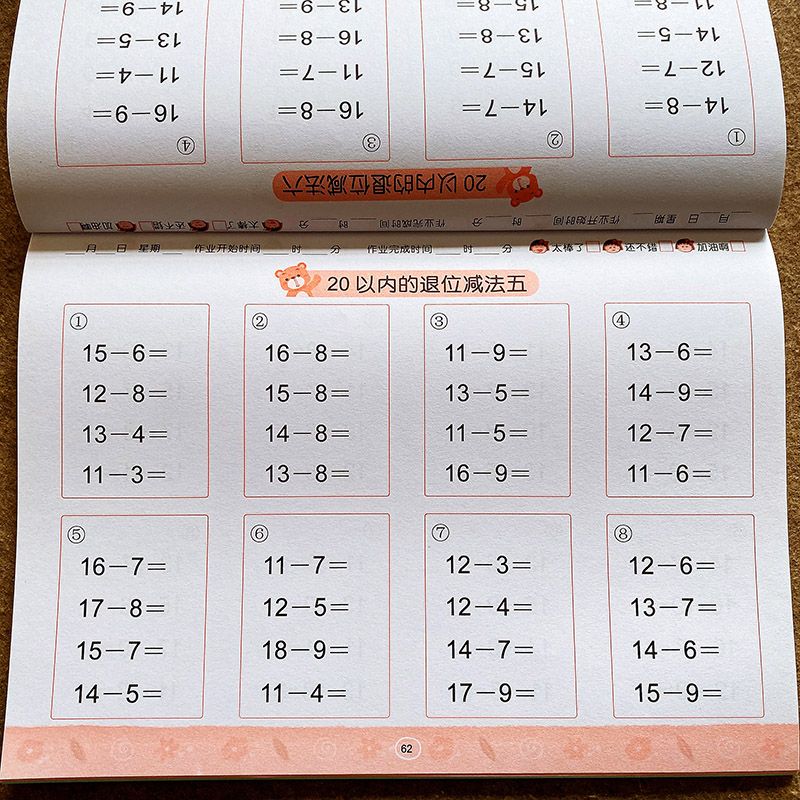 月 日 星期 作业开始时间 时 分 作业完成时间 时 分 太棒了 还不错 加油啊
20以内的退位减法六
① ② ③ ④
14－8= 14－7= 16－8= 16－9=
12－7= 15－7= 11－7= 11－4=
14－5= 13－8= 16－8= 13－5=
11－8= 13－9= 14－9=
月 日 星期 作业开始时间 时 分 作业完成时间 时 分 太棒了 还不错 加油啊
20以内的退位减法五
① ② ③ ④
15－6= 16－8= 11－9= 13－6=
12－8= 15－8= 13－5= 14－9=
13－4= 14－8= 11－5= 12－7=
11－3= 13－8= 16－9= 11－6=
⑤ ⑥ ⑦ ⑧
16－7= 11－7= 12－3= 12－6=
17－8= 12－5= 12－4= 13－7=
15－7= 18－9= 14－7= 14－6=
14－5= 11－4= 17－9= 15－9=
62